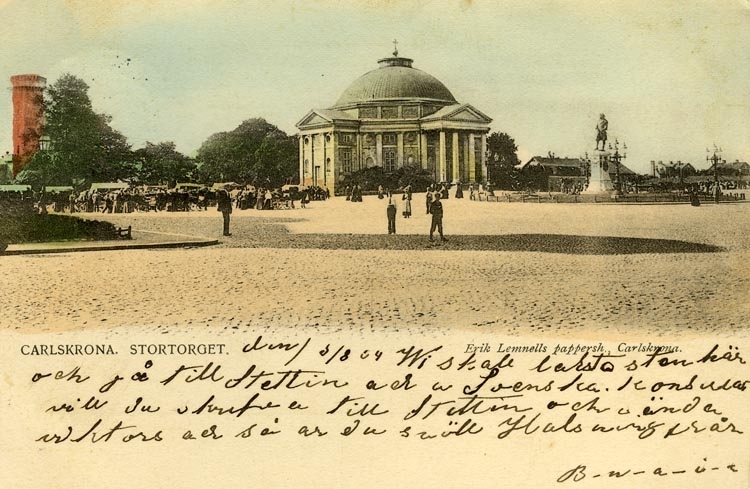 CARLSKRONA. STORTORGET.
Erik Lemnells pappersh., Carlskrona.
den 3/8 04 Vi skall lasta sten här
och gå till Stettin adr a Svenska. Konsula
vill du skrifva till Stettin och ända
adr så är du snäll Halsning från
B-n-a-i-a